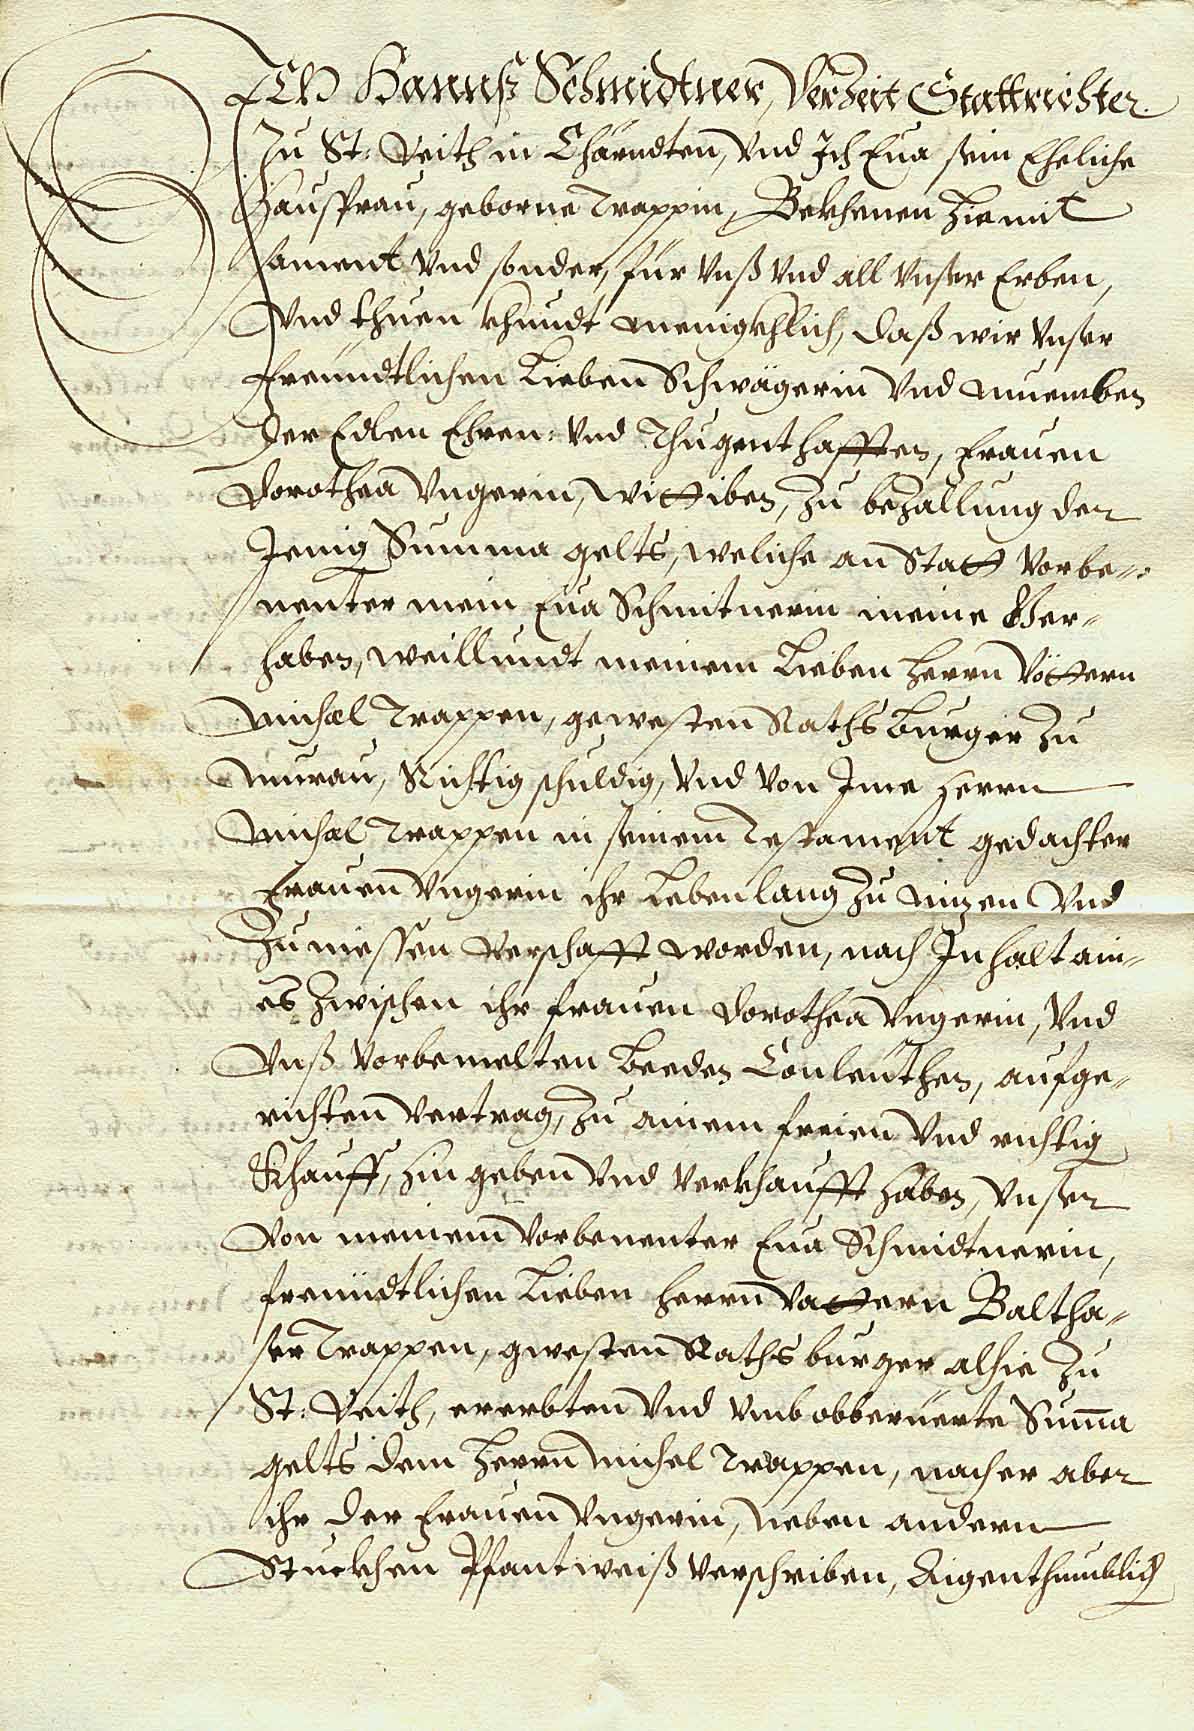 ICH Hannß Schmidtner, Derzeit Stattrichter
Zu St: Veith in Chärndten, Vnd Ich Eua sein Eheliche
Hausfrau, geborne Trappin, Bekhenen hiemit
sament Vnd sonder, für Vnß Vnd all Vnser Erben,
Vnd thuen khundt menigkhlich, daß wir Vnser
freundtlichen Lieben Schwägerin Vnd Muemben
Der Edlen Ehren: Vnd Thugenthafften, Frauen
Dorothea Vngerin, Wittiben, Zu bezallung der
Jenig Summa gelts, weliche an Statt Vorbe-
nenter mein Eua Schmitnerin meine Ger-
haben, weillundt meinem Lieben Herrn Vöttern
Michæl Trappen, gewesten Raths Burger Zu
Murau, Richtig schuldig, Vnd Von Ime Herrn
Michæl Trappen in seinem Testament gedachter
Frauen Vngerin ihr Lebenlang Zu Nuzen Vnd
Zu niessen Verschafft worden, nach Inhalt ain-
es Zwischen ihr Frauen Dorothea Vngerin, Vnd
Vnß Vorbemelten Beeden Conleuthen, aufge-
richten Vertrag, Zu ainem freien Vnd richtig
Khauff, hin geben Vnd Verkhaufft haben, Vnser
Von meinem Vorbenenter Eua Schmidtnerin,
freundtlichen Lieben Herrn Vattern Baltha-
ser Trappen, gwesten Raths burger alhie Zu
St: Veith, ererbten Vnd Vmb obberuerte Suma
gelts dem Herrn Michel Trappen, nacher aber
ihr der Frauen Vngerin, Neben andern
Stuckhen Pfantweiß Verschriben, Aigenthumblich